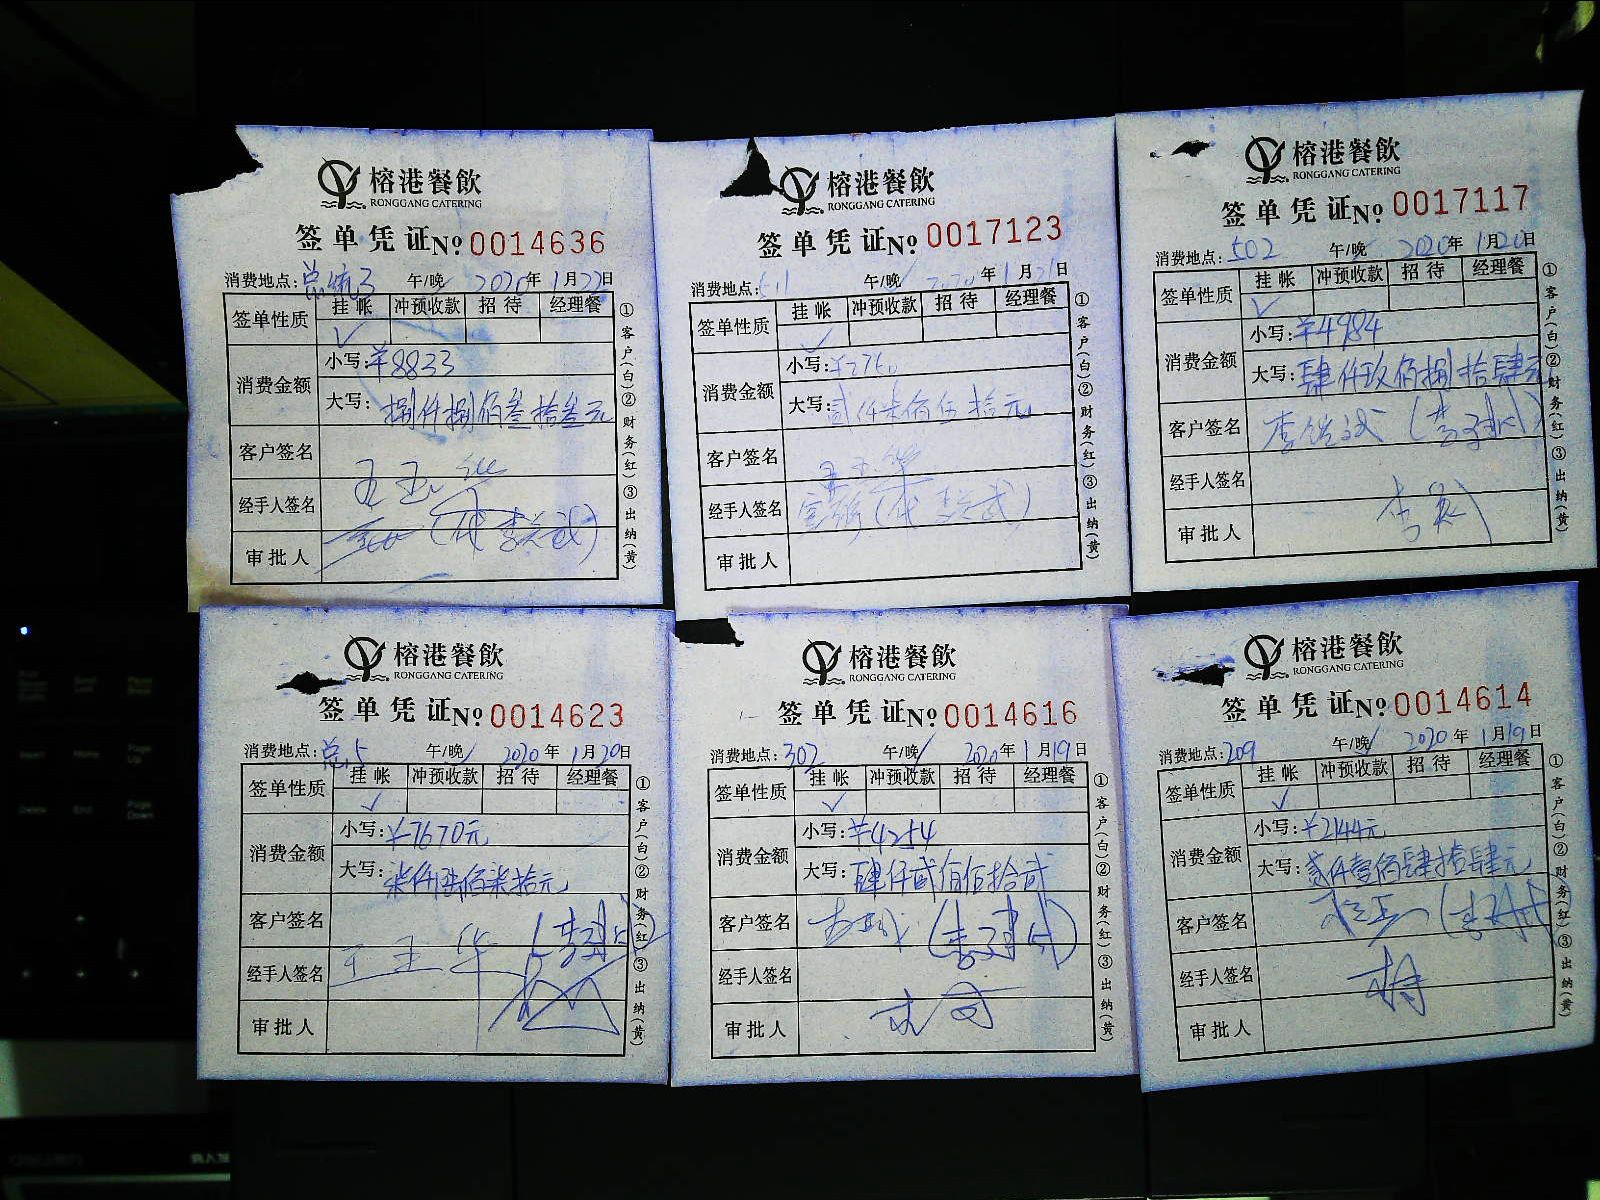 榕港餐飲
RONGGANG CATERING
签单凭证 №0014636
消费地点: 总统3 午/晚 2020年1月22日
签单性质 挂帐 冲预收款 招待 经理餐
✓
消费金额 小写:¥8833
大写: 捌仟捌佰叁拾叁元
客户签名
经手人签名
(代李总武)
审批人
①客户(白)②财务(红)③出纳(黄)
榕港餐飲
RONGGANG CATERING
签单凭证 №0017123
消费地点: 511 午/晚 2020年1月21日
签单性质 挂帐 冲预收款 招待 经理餐
✓
消费金额 小写:¥2750
大写: 贰仟柒佰伍拾元
客户签名
经手人签名
审批人
①客户(白)②财务(红)③出纳(黄)
榕港餐飲
RONGGANG CATERING
签单凭证 №0017117
消费地点: 502 午/晚 2020年1月20日
签单性质 挂帐 冲预收款 招待 经理餐
✓
消费金额 小写:¥4984
大写: 肆仟玖佰捌拾肆元
客户签名
经手人签名
审批人
①客户(白)②财务(红)③出纳(黄)
榕港餐飲
RONGGANG CATERING
签单凭证 №0014623
消费地点: 总5 午/晚 2020年1月20日
签单性质 挂帐 冲预收款 招待 经理餐
✓
消费金额 小写:¥7670元
大写: 柒仟陆佰柒拾元
客户签名
经手人签名
审批人
①客户(白)②财务(红)③出纳(黄)
榕港餐飲
RONGGANG CATERING
签单凭证 №0014616
消费地点: 302 午/晚 2020年1月19日
签单性质 挂帐 冲预收款 招待 经理餐
✓
消费金额 小写:¥4254
大写: 肆仟贰佰
客户签名
经手人签名
审批人
①客户(白)②财务(红)③出纳(黄)
榕港餐飲
RONGGANG CATERING
签单凭证 №0014614
消费地点: 209 午/晚 2020年1月19日
签单性质 挂帐 冲预收款 招待 经理餐
✓
消费金额 小写:¥2144元
大写: 贰仟壹佰肆拾肆元
客户签名
经手人签名
审批人
①客户(白)②财务(红)③出纳(黄)